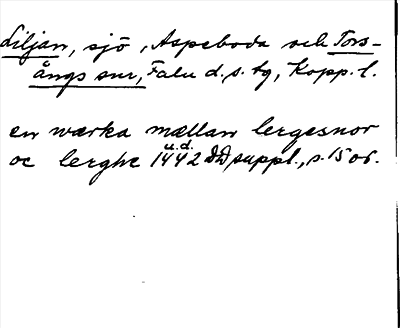 Liljan, sjö, Aspeboda och Tors-
ångs snr, Falu d.s. tg, Kopp. l.
en wærka mællan lergesnor
oc lerghe 1442 u.d. DD suppl., s. 1506.